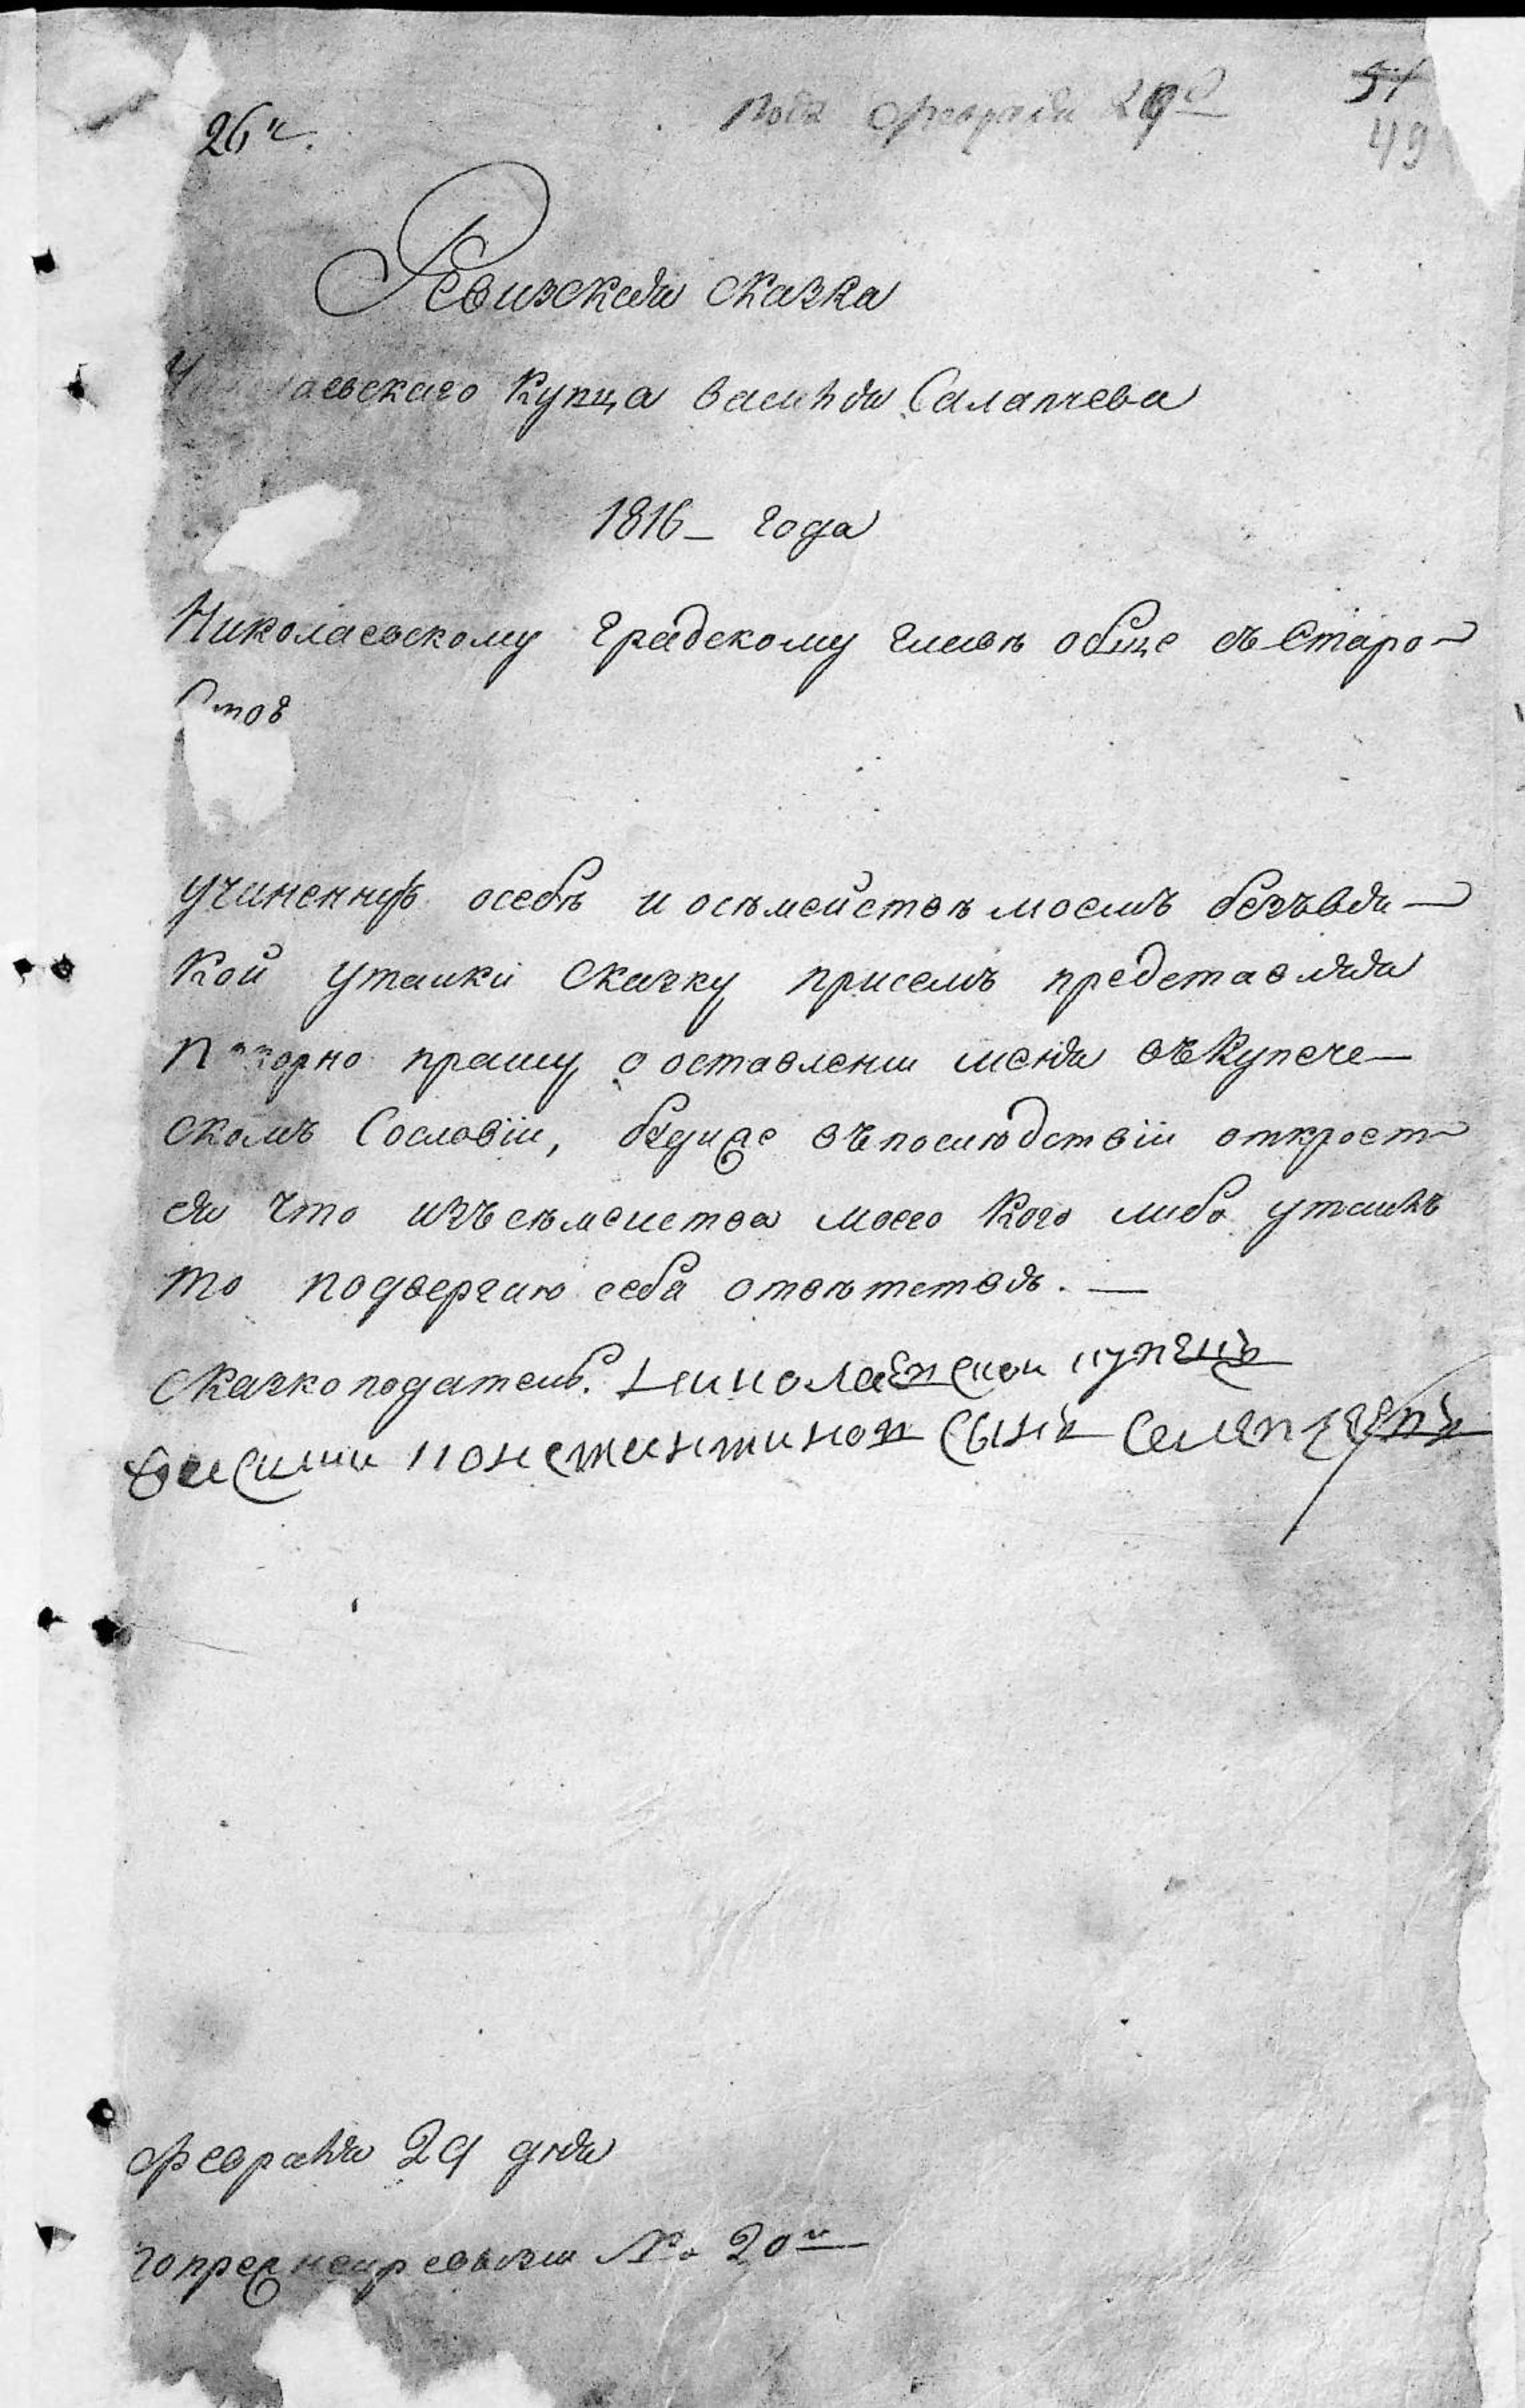 26й.
Февраля 29д
51
49
Ревизская сказка
Николаевскаго Купца василья Салапчева
1816 – года
Николаевскому градскому главѣ обще съ Старо–
стов
учиненную осебѣ и осѣмействѣ моемъ безъвся–
кой утайки Скаску присемъ представляя
Покорно прашу о оставлении меня въКупече–
скомъ Сословіи, будиже въпослѣдствіи открост–
ся что изъ сѣмеиства моего Кого либо утаилъ
то подвергаю себя отвѣтствѣ. —
Сказкоподатель. николаевской купецъ
василий константинов сынъ Салапчевъ
Февраля 29 дня
попрежнейревизии №о 20й